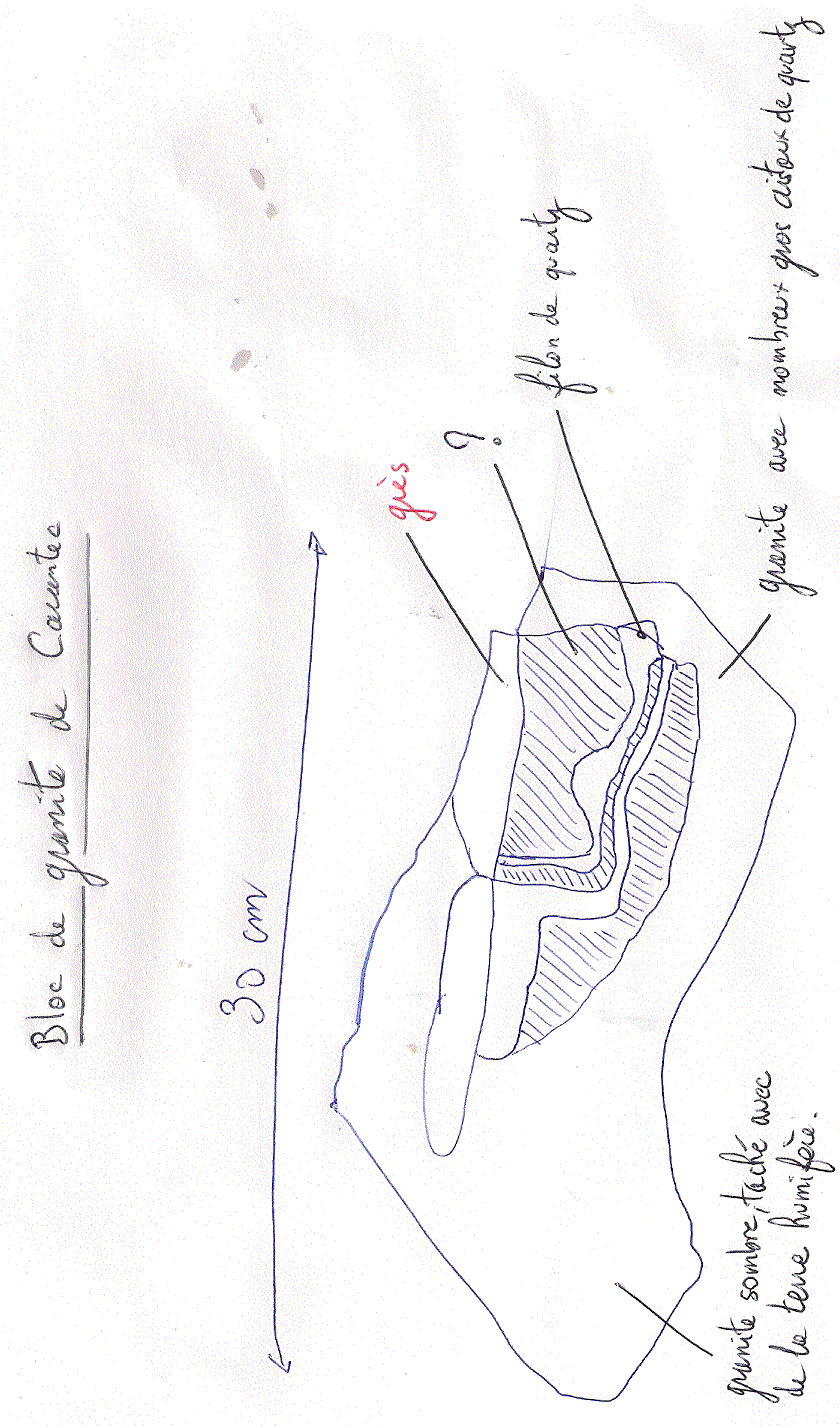 Bloc de granite de Carantec
30 cm
grès
?
filon de quartz
granite avec nombreux gros cristaux de quartz
granite sombre, taché avec
de la terre humifère.